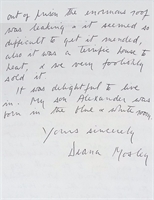 out of prison the enormous roof
was leaking & it seemed so
difficult to get it mended,
also it was a terrific house to
heat, & we very foolishly
sold it
It was delightful to live
in. My son Alexander was
born in the blue & white room.
Yours sincerely
Diana Mosley